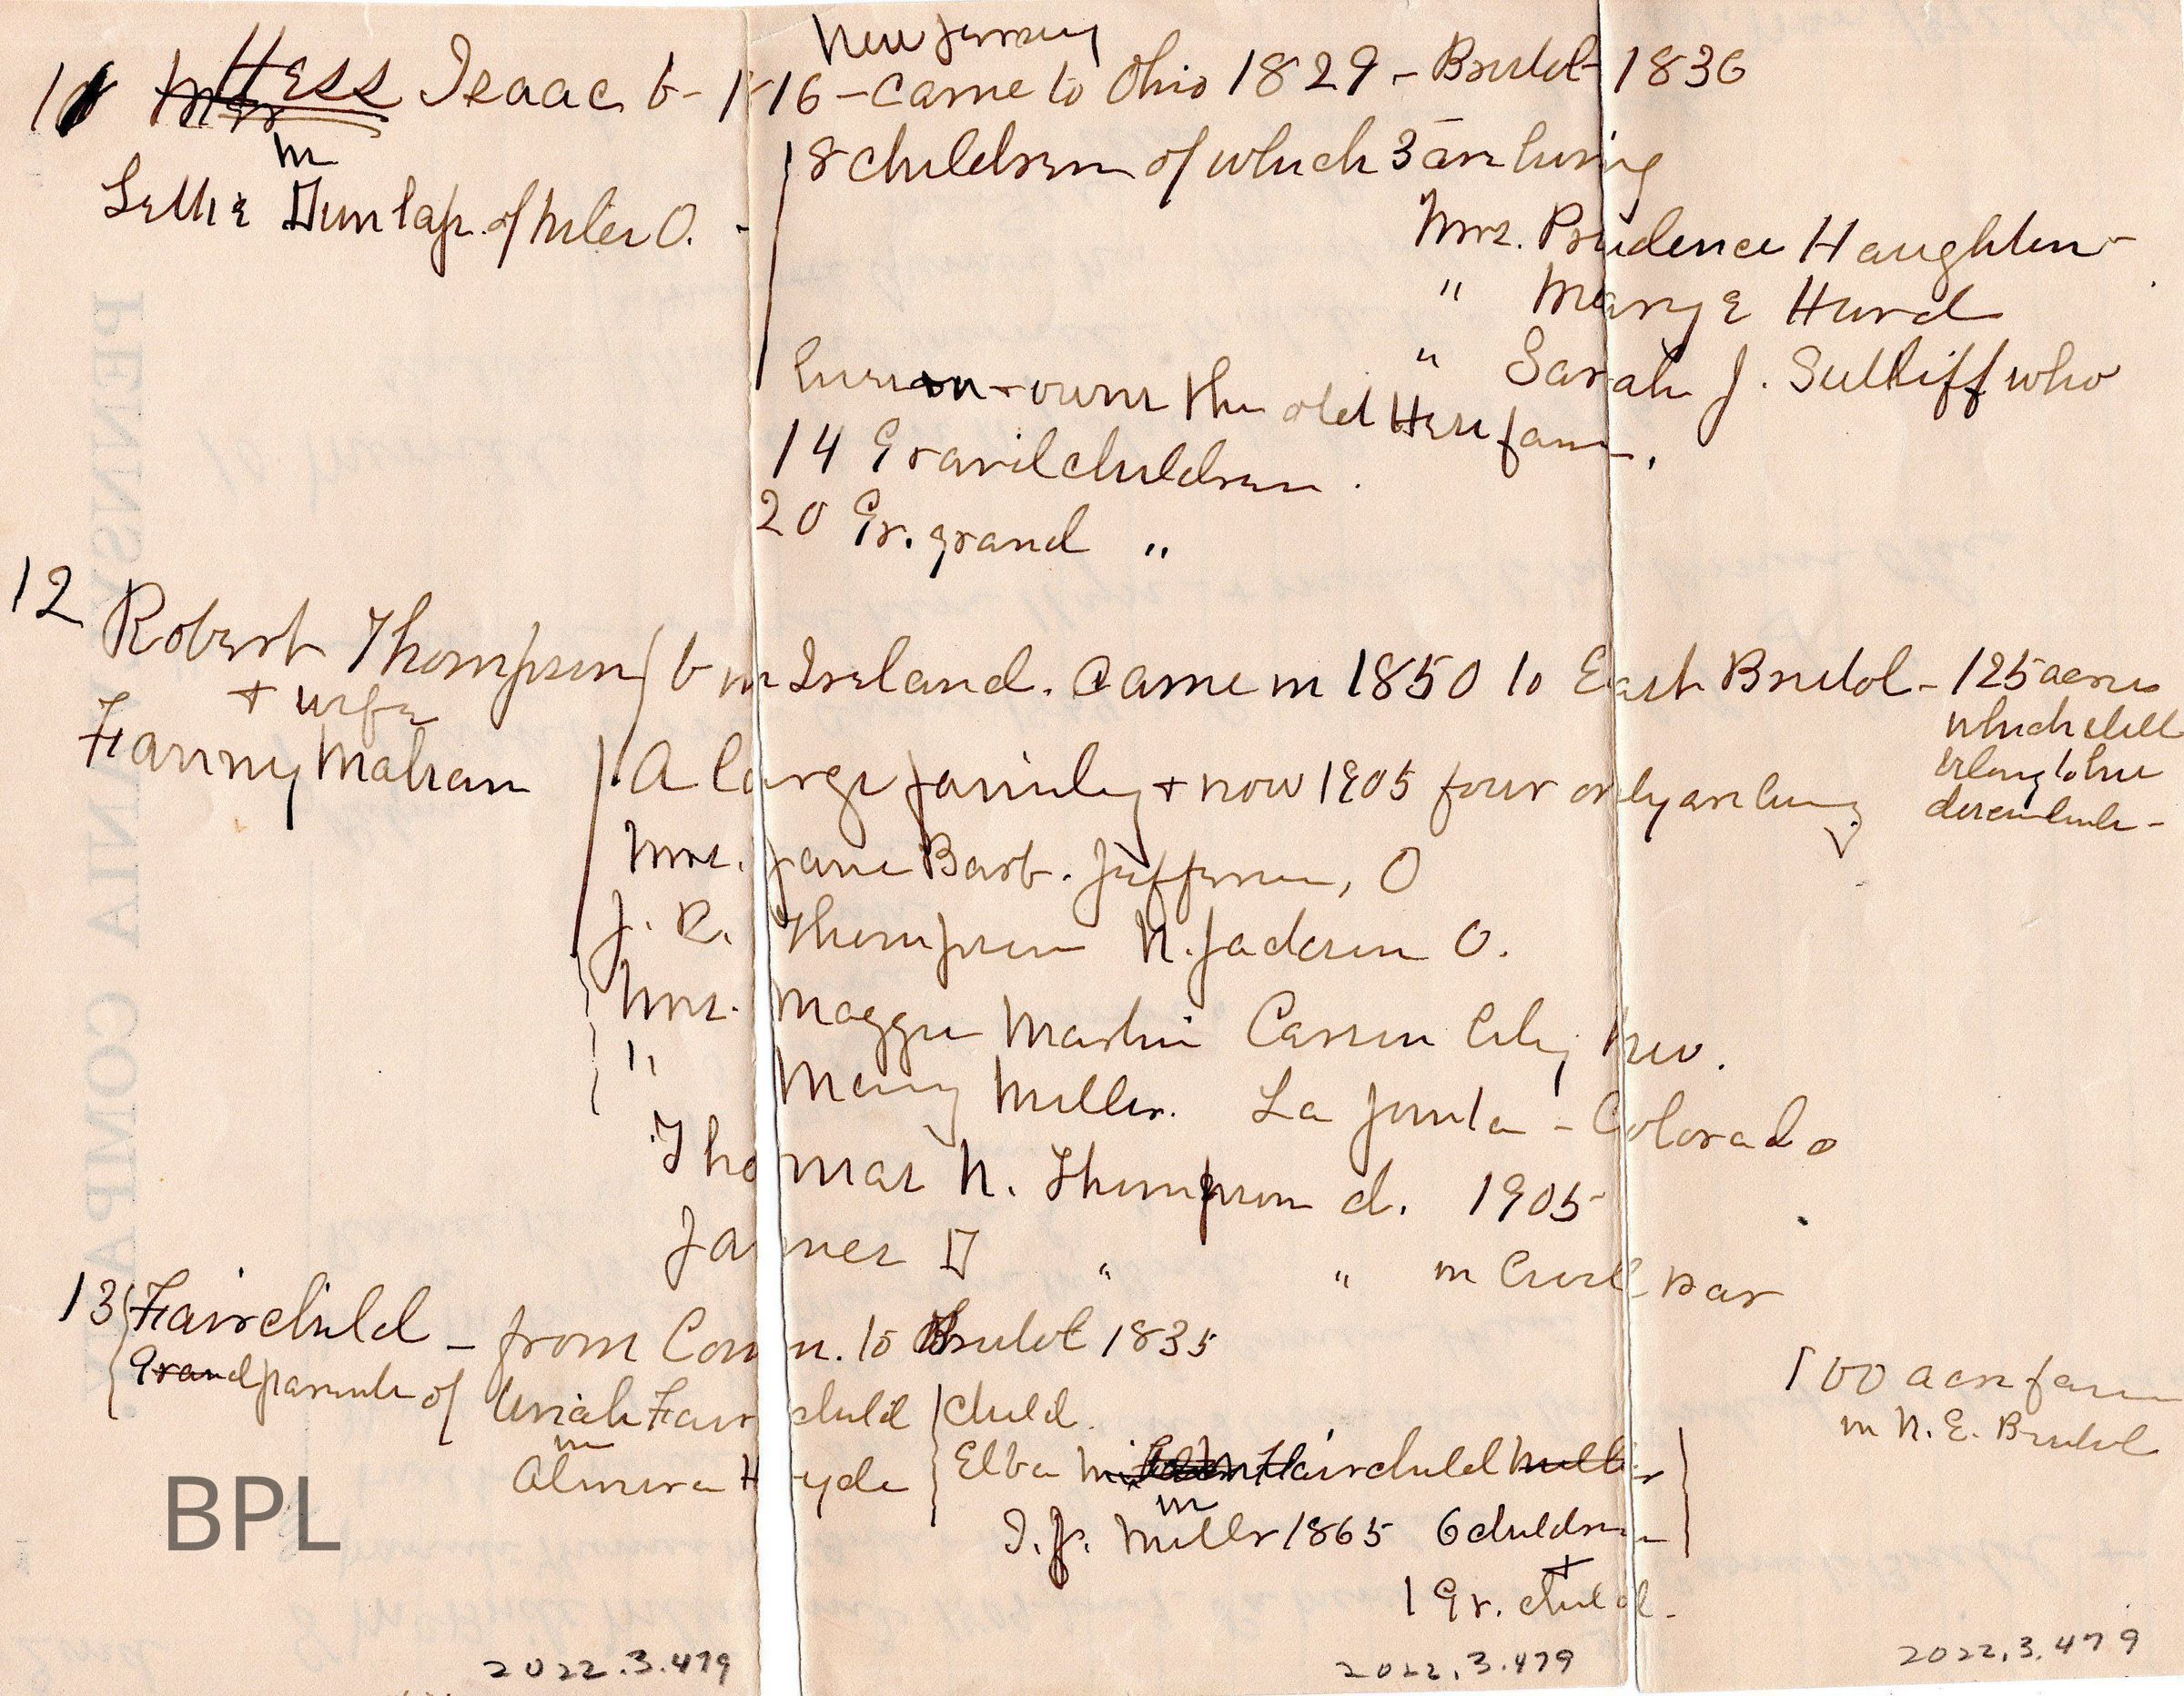 New Jersey
11 Hess Isaac b- 1816 - came to Ohio 1829 - Bristol 1836
m
Dunlap. of Niles O. -
8 children of which 3 are living
Mrs. Prudence Haughton -
" Mary E Hurd
" Sarah J. Sutliff who
owns the old Hess farm.
14 Grandchildren.
20 Gr. grand "
12 Robert Thompson b in Ireland. Came in 1850 to East Bristol - 125 acres
+ wife
which still
Fanny
A large family + now 1905 four only are living
belong to his
descendents -
Mrs. Jane Barb. Jefferson, O
J. R. Thompson N. Jackson O.
Mrs. Maggie Martin Carson City Nev.
" Mary Miller. La Junta - Colorado
Thomas N. Thompson d. 1905
James D " " in Civil War
13 Fairchild - from Conn. to Bristol 1835
Grandparents of Uriah Fairchild
child.
100 acre farm
in N. E. Bristol
m
Almira Hyde
Elba Fairchild
m
I. J. Miller 1865 6 children
+
1 Gr. child.
BPL
2022.3.479
2022.3.479
2022.3.479
PENNSYLVANIA COMPANY.